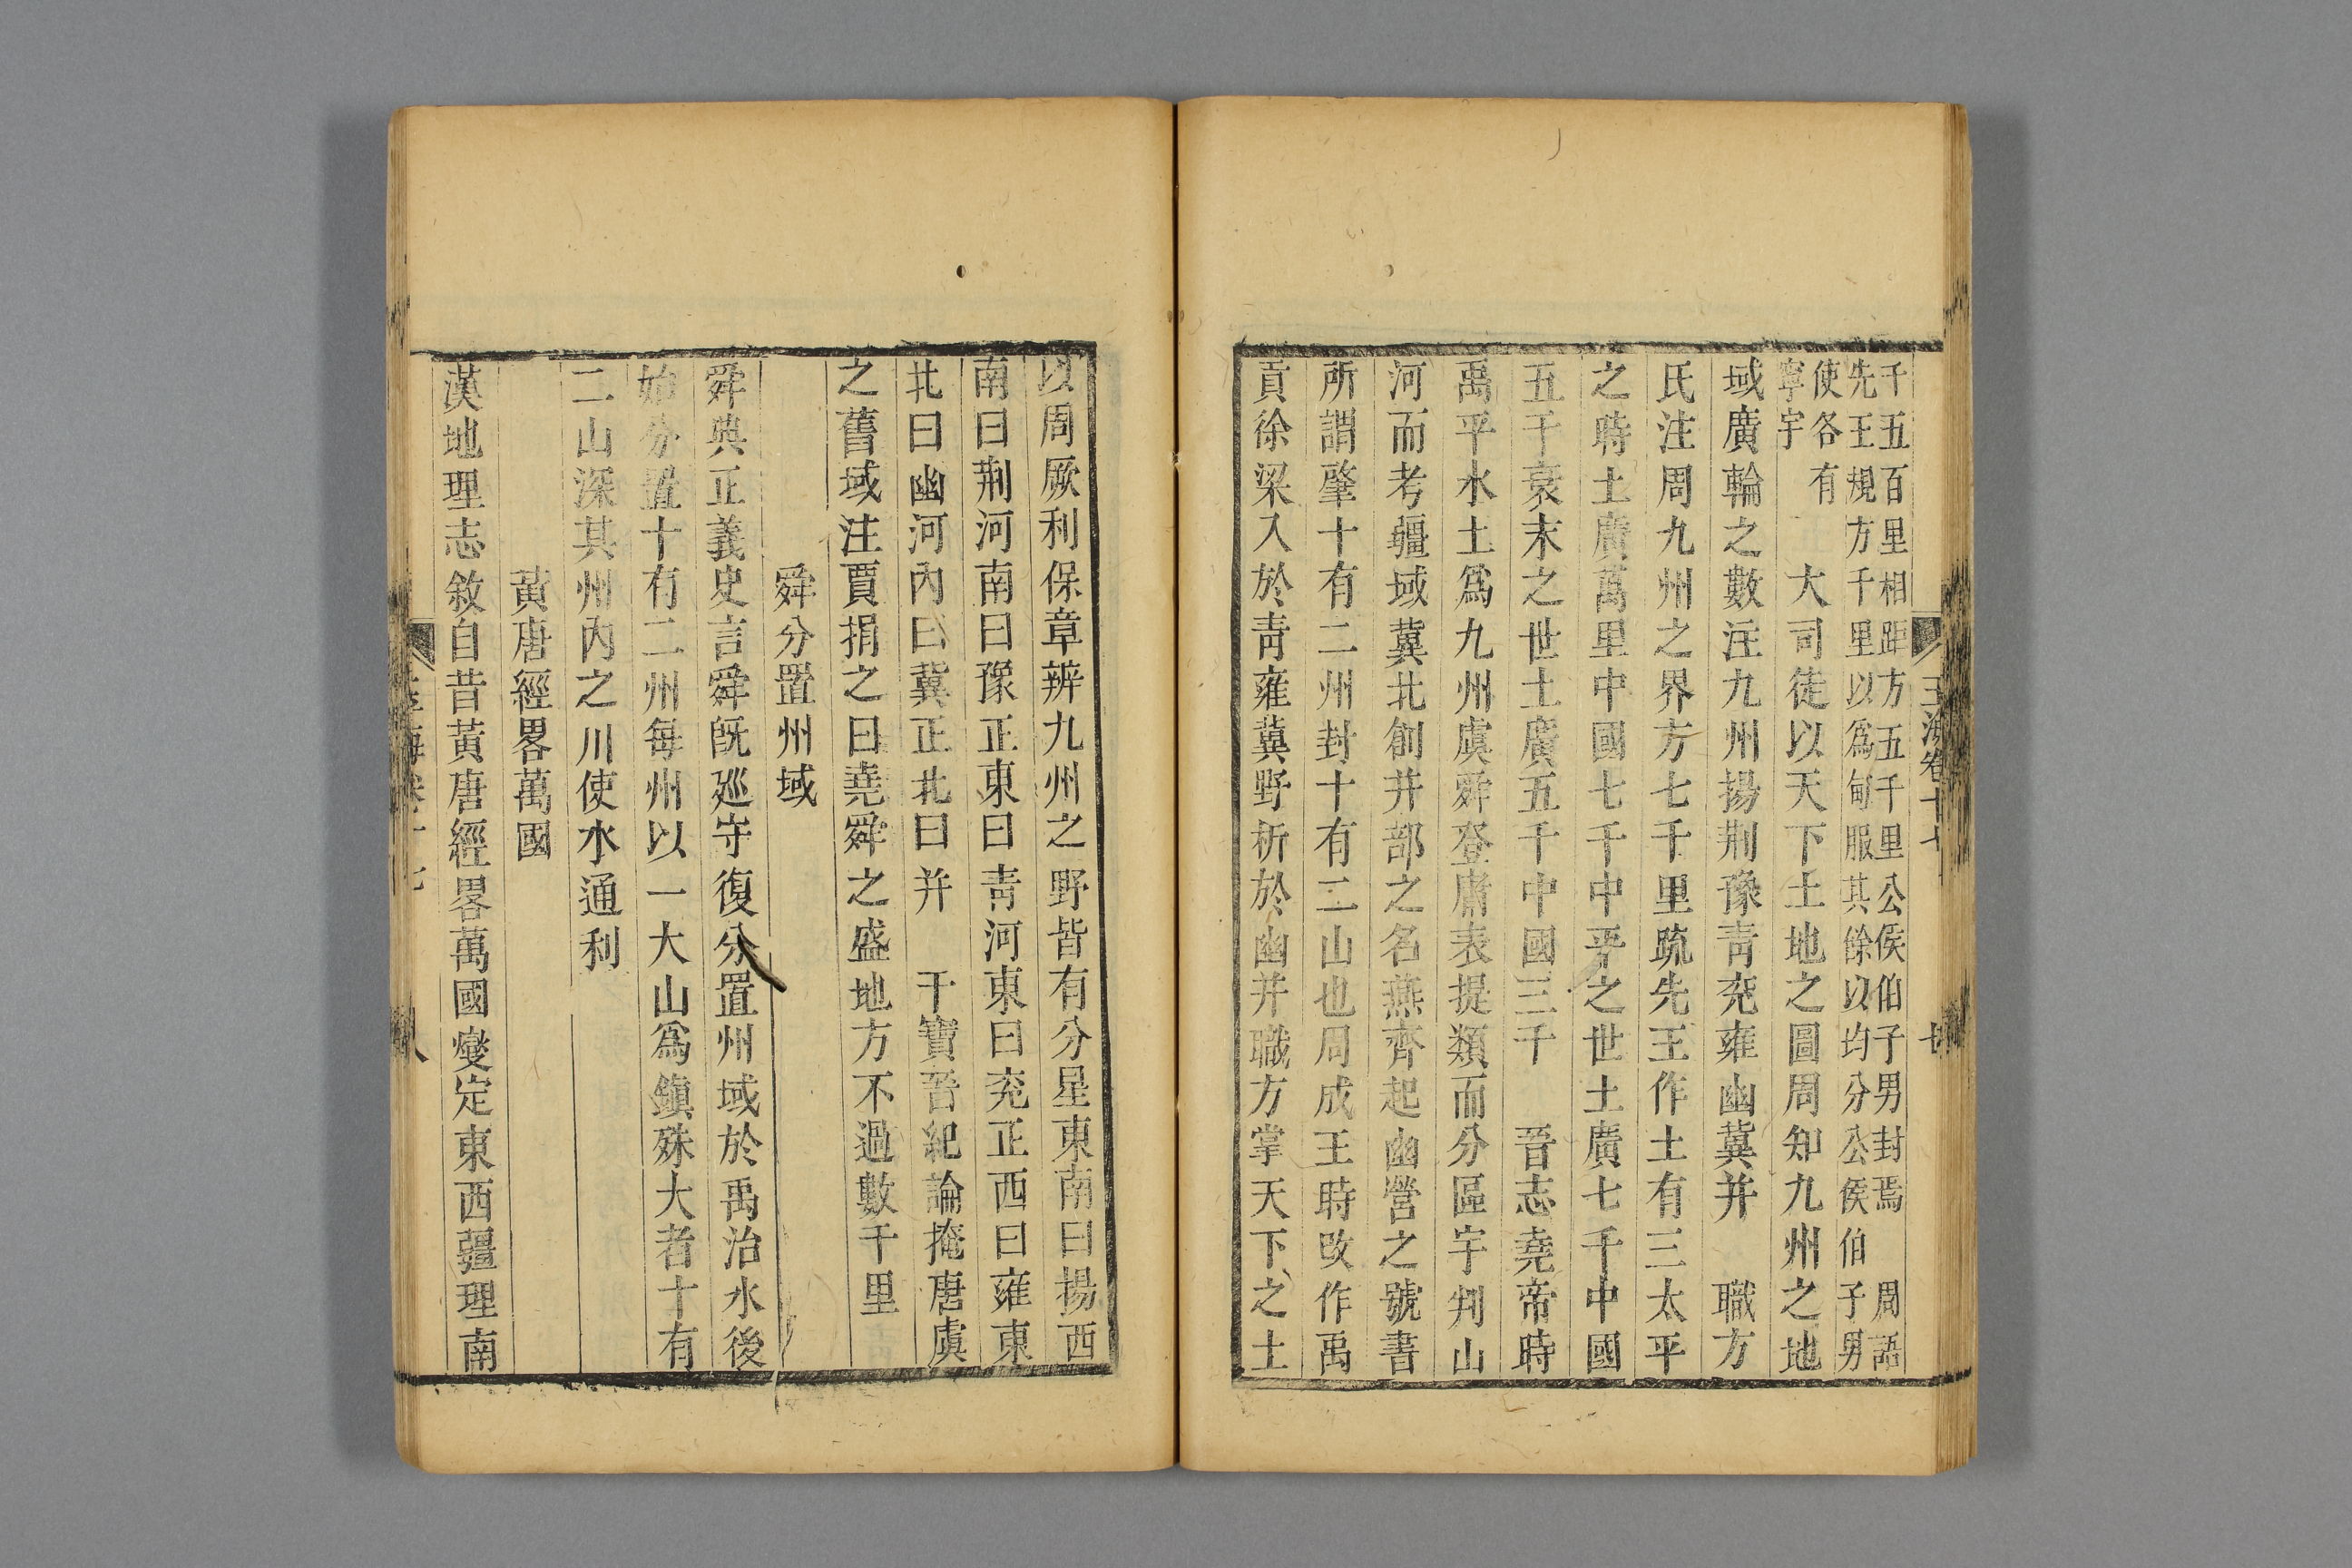 玉海卷十七
千五百里相距方五千里公侯伯子男封焉 周語
先王規方千里以爲甸服其餘以均分公侯伯子男
使各有
寧宇
大司徒以天下土地之圖周知九州之地
域廣輪之數注九州揚荆豫青兖雍幽冀并 職方
氏注周九州之界方七千里疏先王作土有三太平
之時土廣萬里中國七千中平之世土廣七千中國
五千衰末之世土廣五千中國三千 晉志堯帝時
禹平水土爲九州虞舜登庸表提類而分區宇判山
河而考疆域冀北創并部之名燕齊起幽營之號書
所謂肇十有二州封十有二山也周成王時改作禹
貢徐梁入於青雍冀野析於幽并職方掌天下之土
以周厥利保章辨九州之野皆有分星東南曰揚西
南曰荆河南曰豫正東曰青河東曰兖正西曰雍東
北曰幽河內曰冀正北曰并 干寶晉紀論掩唐虞
之舊域注賈捐之曰堯舜之盛地方不過數千里
舜分置州域
舜典正義史言舜既廵守復分置州域於禹治水後
始分置十有二州每州以一大山爲鎭殊大者十有
二山深其州內之川使水通利
黃唐經畧萬國
漢地理志敘自昔黃唐經畧萬國燮定東西疆理南
八